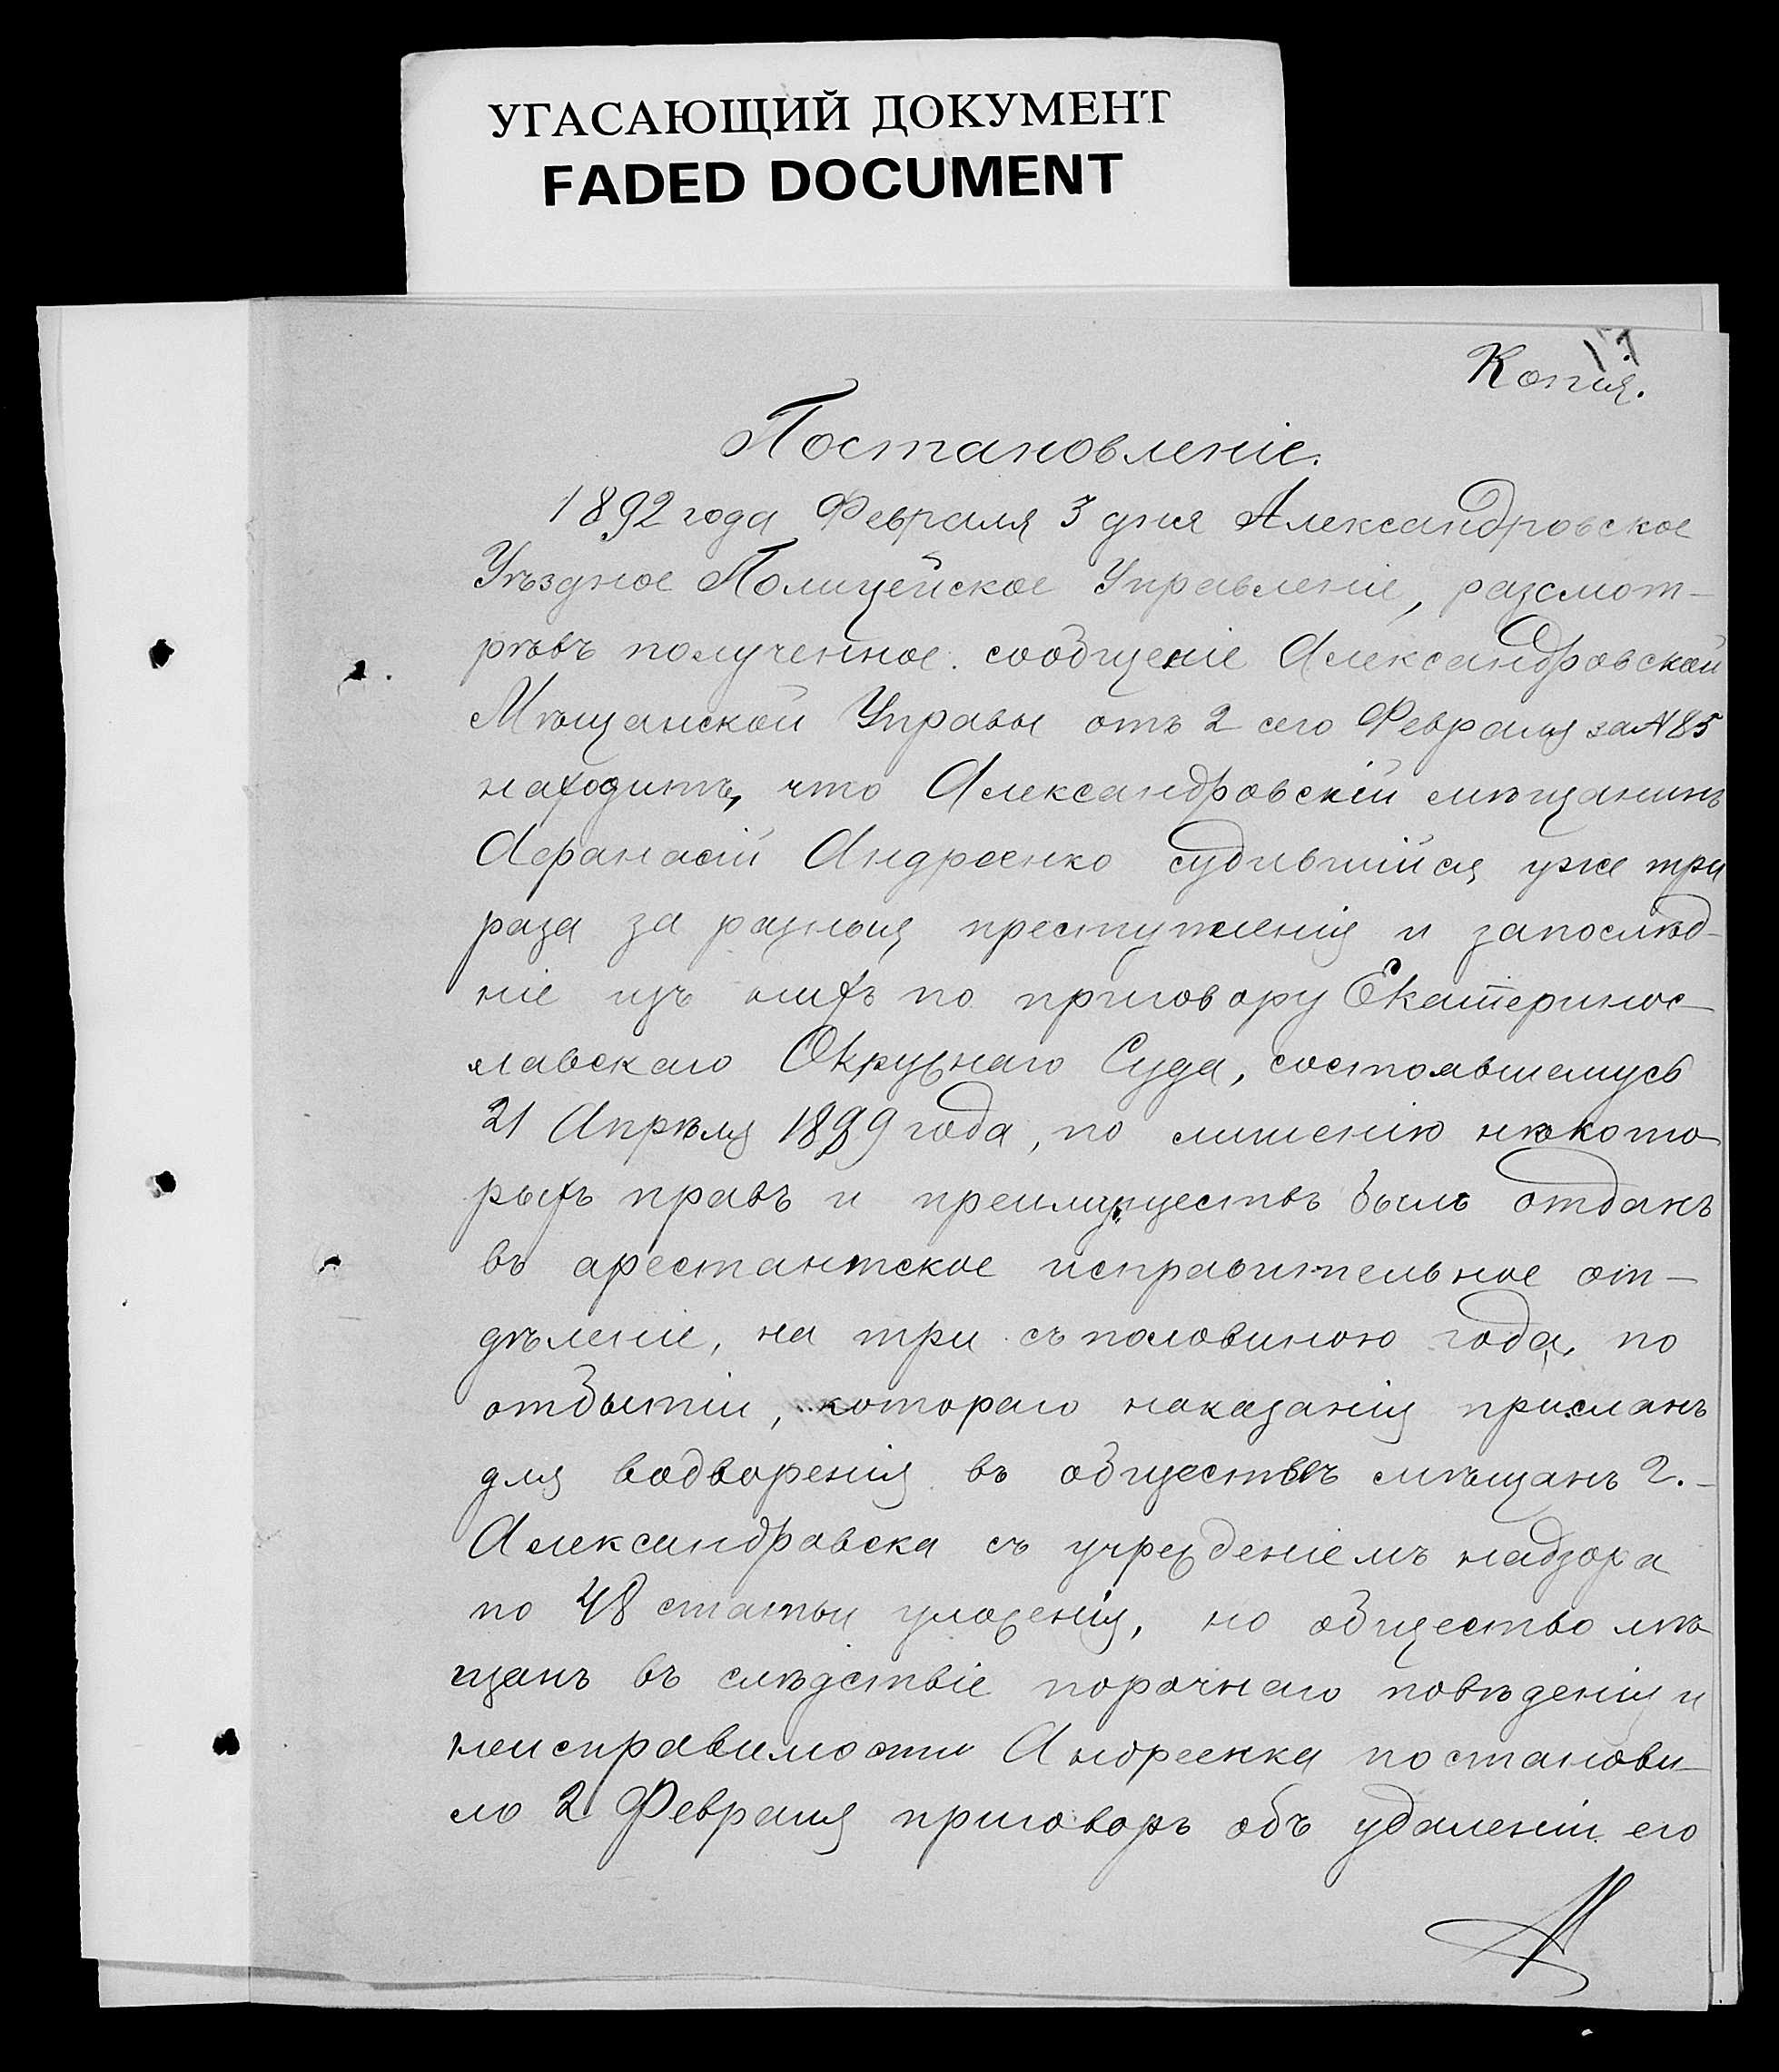 УГАСАЮЩИЙ ДОКУМЕНТ
FADED DOCUMENT
17
Копія.
Постановленіе.
1892 года Февраля 3 дня Александровское
Уѣздное Полицейское Управленіе, разсмот-
рѣвъ полученное сообщеніе Александровской
Мѣщанской Управы отъ 2 сего Февраля за № 85
находитъ, что Александровскій мѣщанинъ
Афанасій Андреенко судившійся уже три
раза за разныя преступленія и запослѣд-
ніе изъ нихъ по приговору Екатеринос-
лавскаго Окружнаго Суда, состоявшемусь
21 Апрѣля 1889 года, по лишенію нѣкото-
рыхъ правъ и преимуществъ былъ отданъ
въ арестантское исправительное от-
дѣленіе, на три съ половиною года, по
отбытіи, котораго наказанія присланъ
для водворенія въ обществѣ мѣщанъ г.-
Александровска съ учрежденіемъ надзора
по 48 статьи уложенія, но общество мѣ-
щанъ въ слѣдствіе порочнаго повѣденія и
неисправимости Андреенка постанови-
ло 2 Февраля приговоръ объ удаленіи его